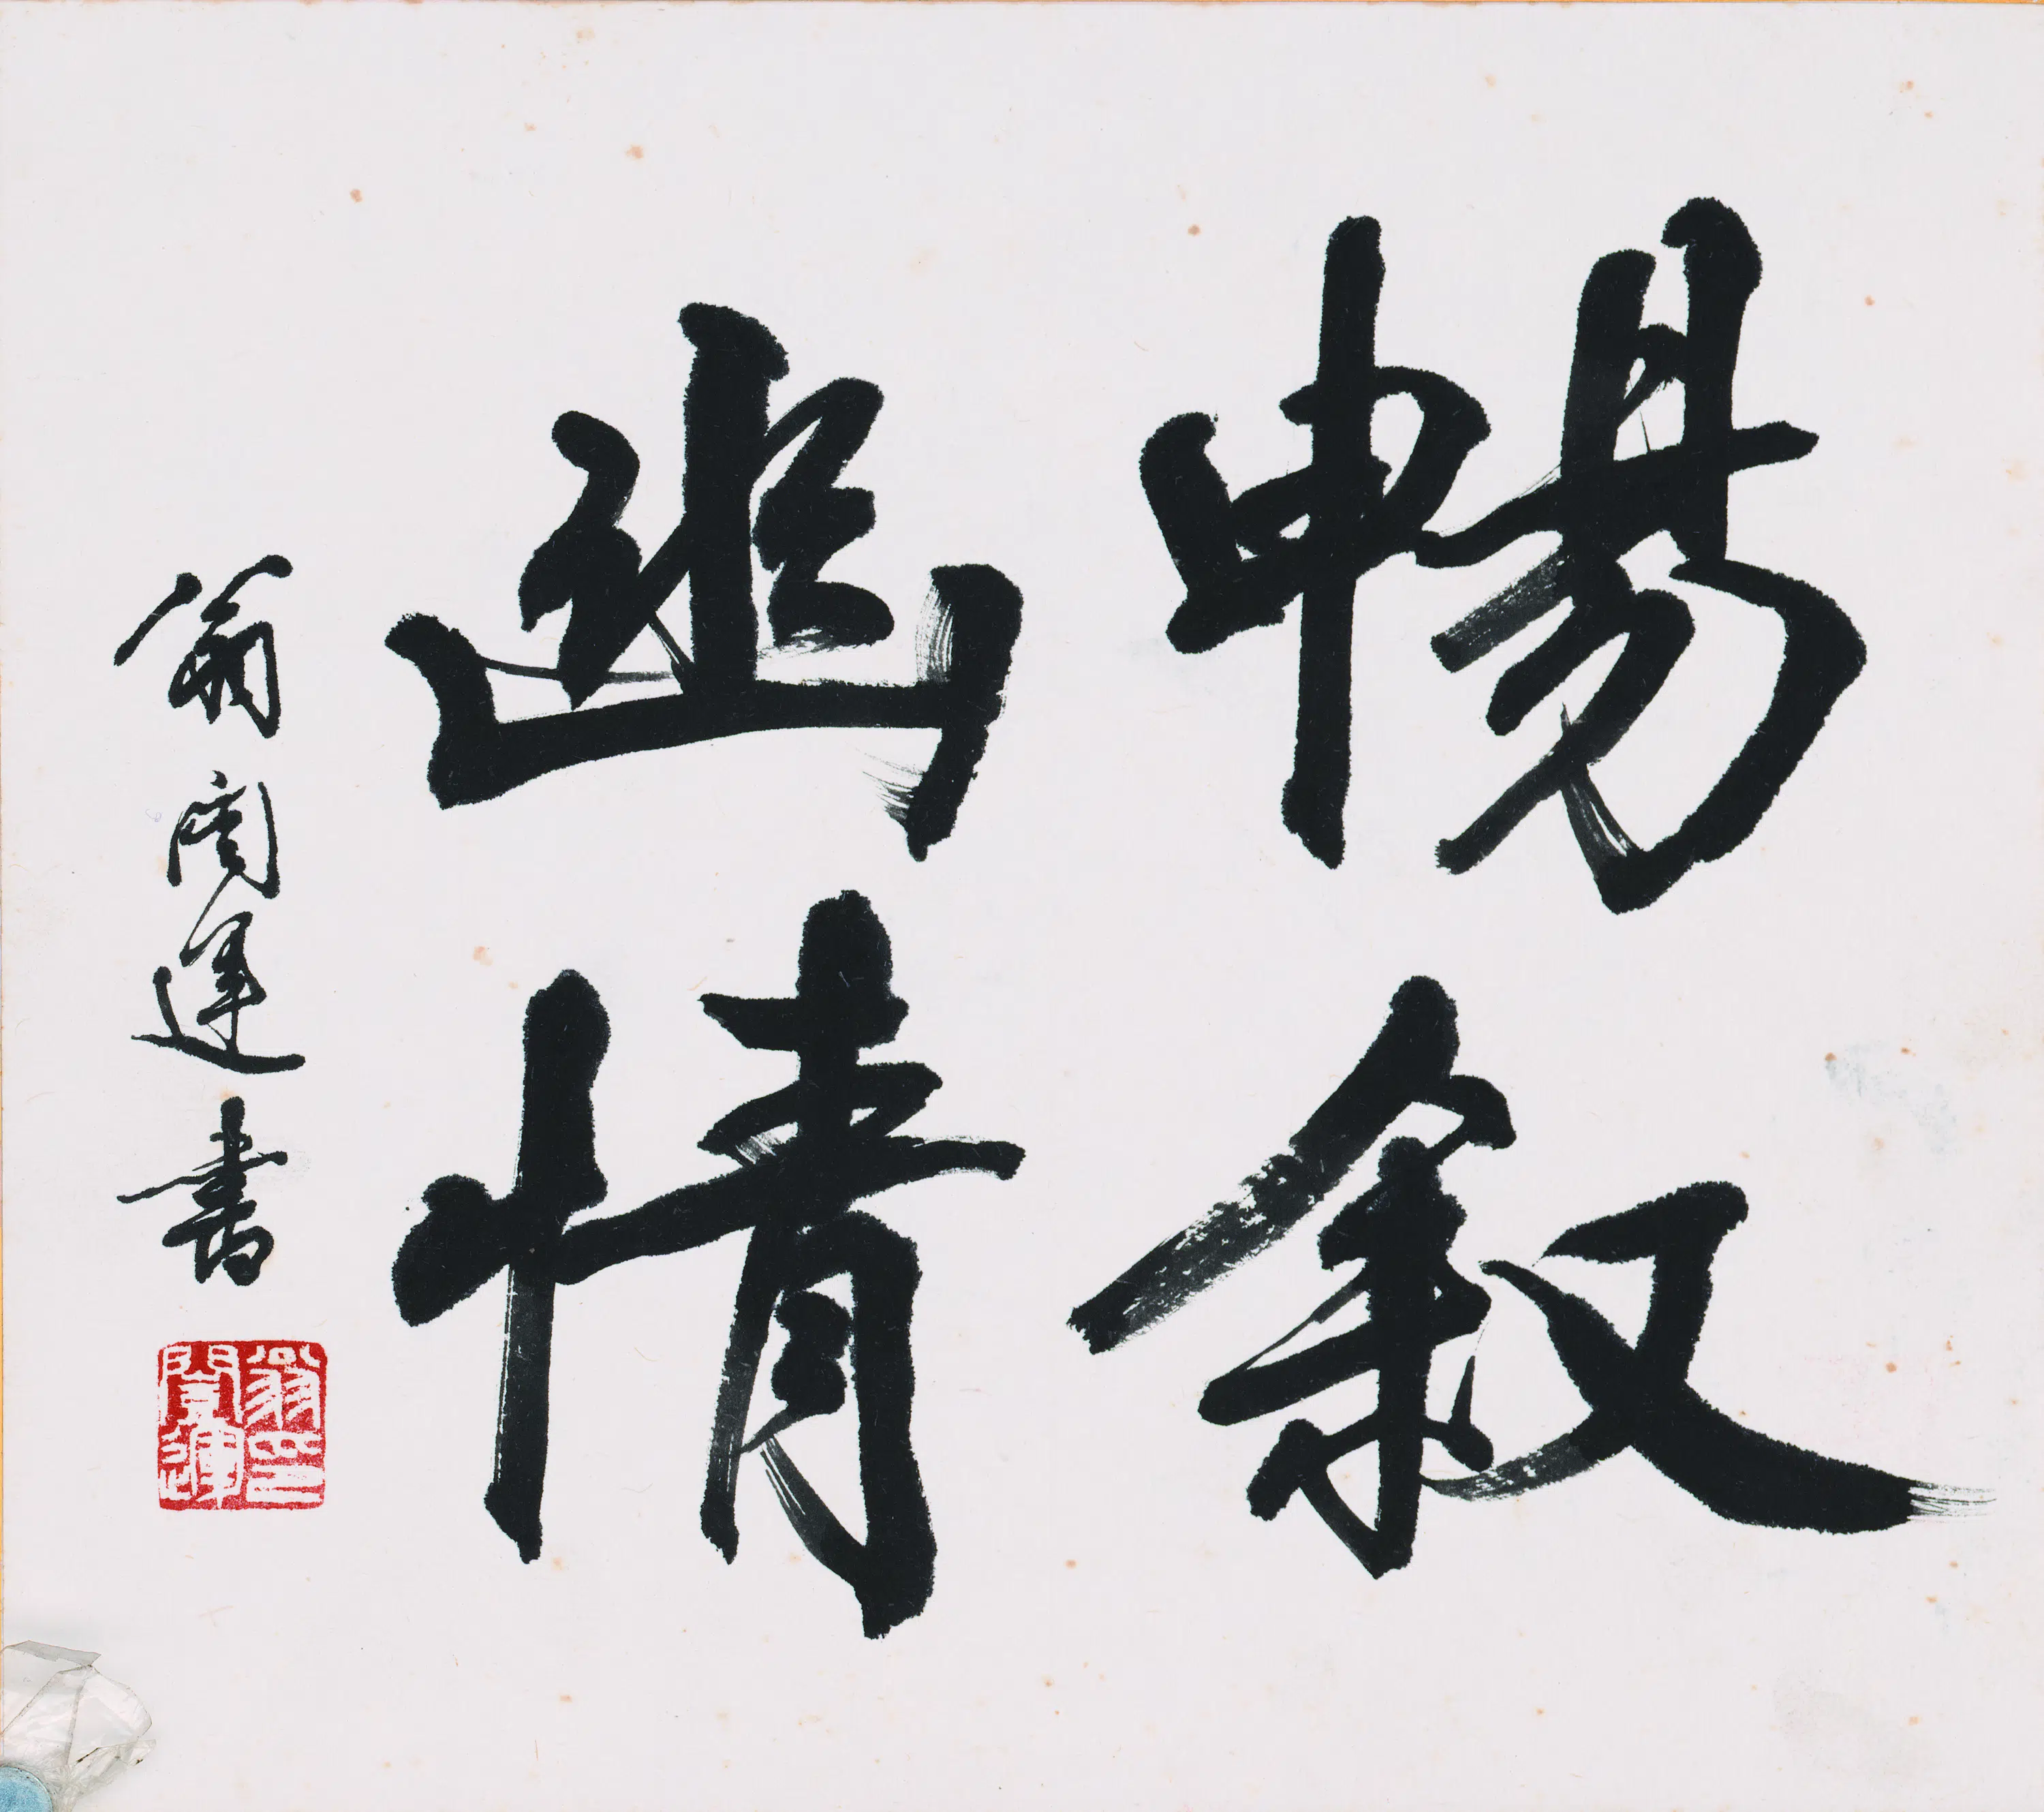 暢叙
幽情
翁闓運書
翁印
闓運